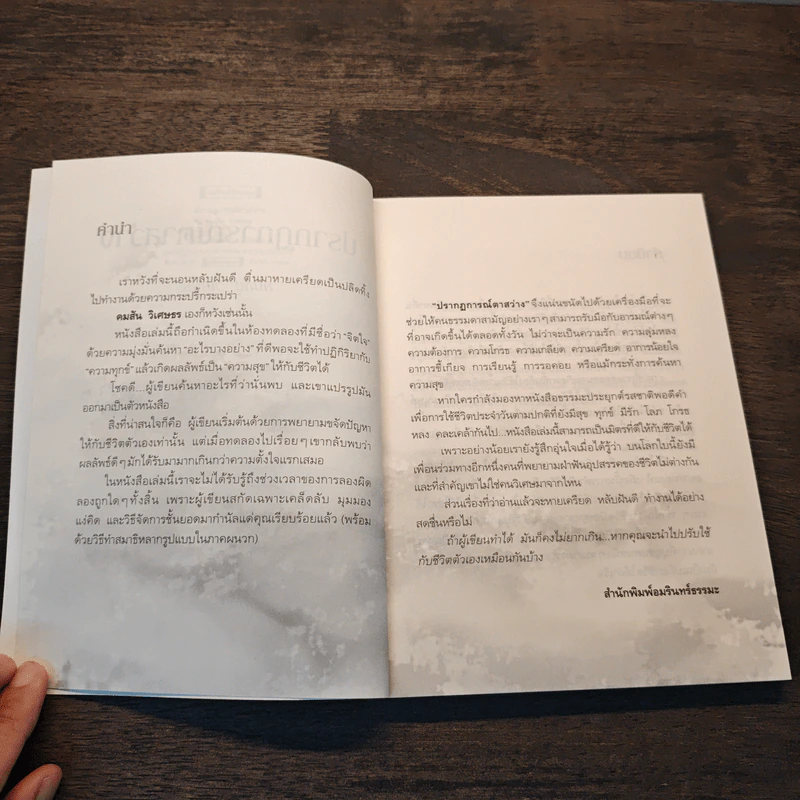 คำนำ
เราหวังที่จะนอนหลับฝันดี ตื่นมาหายเครียดเป็นปลิดทิ้ง
ไปทำงานด้วยความกระปรี้กระเปร่า
คมสัน วิเศษธร เองก็หวังเช่นนั้น
หนังสือเล่มนี้ถือกำเนิดขึ้นในห้องทดลองที่มีชื่อว่า "จิตใจ"
ด้วยความมุ่งมั่นค้นหา "อะไรบางอย่าง" ที่ดีพอจะใช้ทำปฏิกิริยากับ
"ความทุกข์" แล้วเกิดผลลัพธ์เป็น "ความสุข" ให้กับชีวิตได้
โชคดี...ผู้เขียนค้นหาอะไรที่ว่านั่นพบ และเขาแปรรูปมัน
ออกมาเป็นตัวหนังสือ
สิ่งที่น่าสนใจก็คือ ผู้เขียนเริ่มต้นด้วยการพยายามขจัดปัญหา
ให้กับชีวิตตัวเองเท่านั้น แต่เมื่อทดลองไปเรื่อยๆ เขากลับพบว่า
ผลลัพธ์ดีๆ มักได้รับมามากเกินกว่าความตั้งใจแรกเสมอ
ในหนังสือเล่มนี้เราจะไม่ได้รับรู้ถึงช่วงเวลาของการลองผิด
ลองถูกใดๆ ทั้งสิ้น เพราะผู้เขียนสกัดเฉพาะเคล็ดลับ มุมมอง
แง่คิด และวิธีจัดการชั้นยอดมากำนัลแด่คุณเรียบร้อยแล้ว (พร้อม
ด้วยวิธีทำสมาธิหลากรูปแบบในภาคผนวก)
"ปรากฏการณ์ตาสว่าง" จึงแน่นขนัดไปด้วยเครื่องมือที่จะ
ช่วยให้คนธรรมดาสามัญอย่างเราๆ สามารถรับมือกับอารมณ์ต่างๆ
ที่อาจเกิดขึ้นได้ตลอดทั้งวัน ไม่ว่าจะเป็นความรัก ความลุ่มหลง
ความต้องการ ความโกรธ ความเกลียด ความเครียด อาการน้อยใจ
อาการขี้เกียจ การเรียนรู้ การรอคอย หรือแม้กระทั่งการค้นหา
ความสุข
หากใครกำลังมองหาหนังสือธรรมะประยุกต์รสชาติพอดีคำ
เพื่อการใช้ชีวิตประจำวันตามปกติที่ยังมีสุข ทุกข์ มีรัก โลภ โกรธ
หลง คละเคล้ากันไป...หนังสือเล่มนี้สามารถเป็นมิตรที่ดีให้กับชีวิตได้
เพราะอย่างน้อยเรายังรู้สึกอุ่นใจเมื่อได้รู้ว่า บนโลกใบนี้ยังมี
เพื่อนร่วมทางอีกหนึ่งคนที่พยายามฝ่าฟันอุปสรรคของชีวิตไม่ต่างกัน
และที่สำคัญเขาไม่ใช่คนวิเศษมาจากไหน
ส่วนเรื่องที่ว่าอ่านแล้วจะหายเครียด หลับฝันดี ทำงานได้อย่าง
สดชื่นหรือไม่
ถ้าผู้เขียนทำได้ มันก็คงไม่ยากเกิน...หากคุณจะนำไปปรับใช้
กับชีวิตตัวเองเหมือนกันบ้าง
สำนักพิมพ์อมรินทร์ธรรมะ